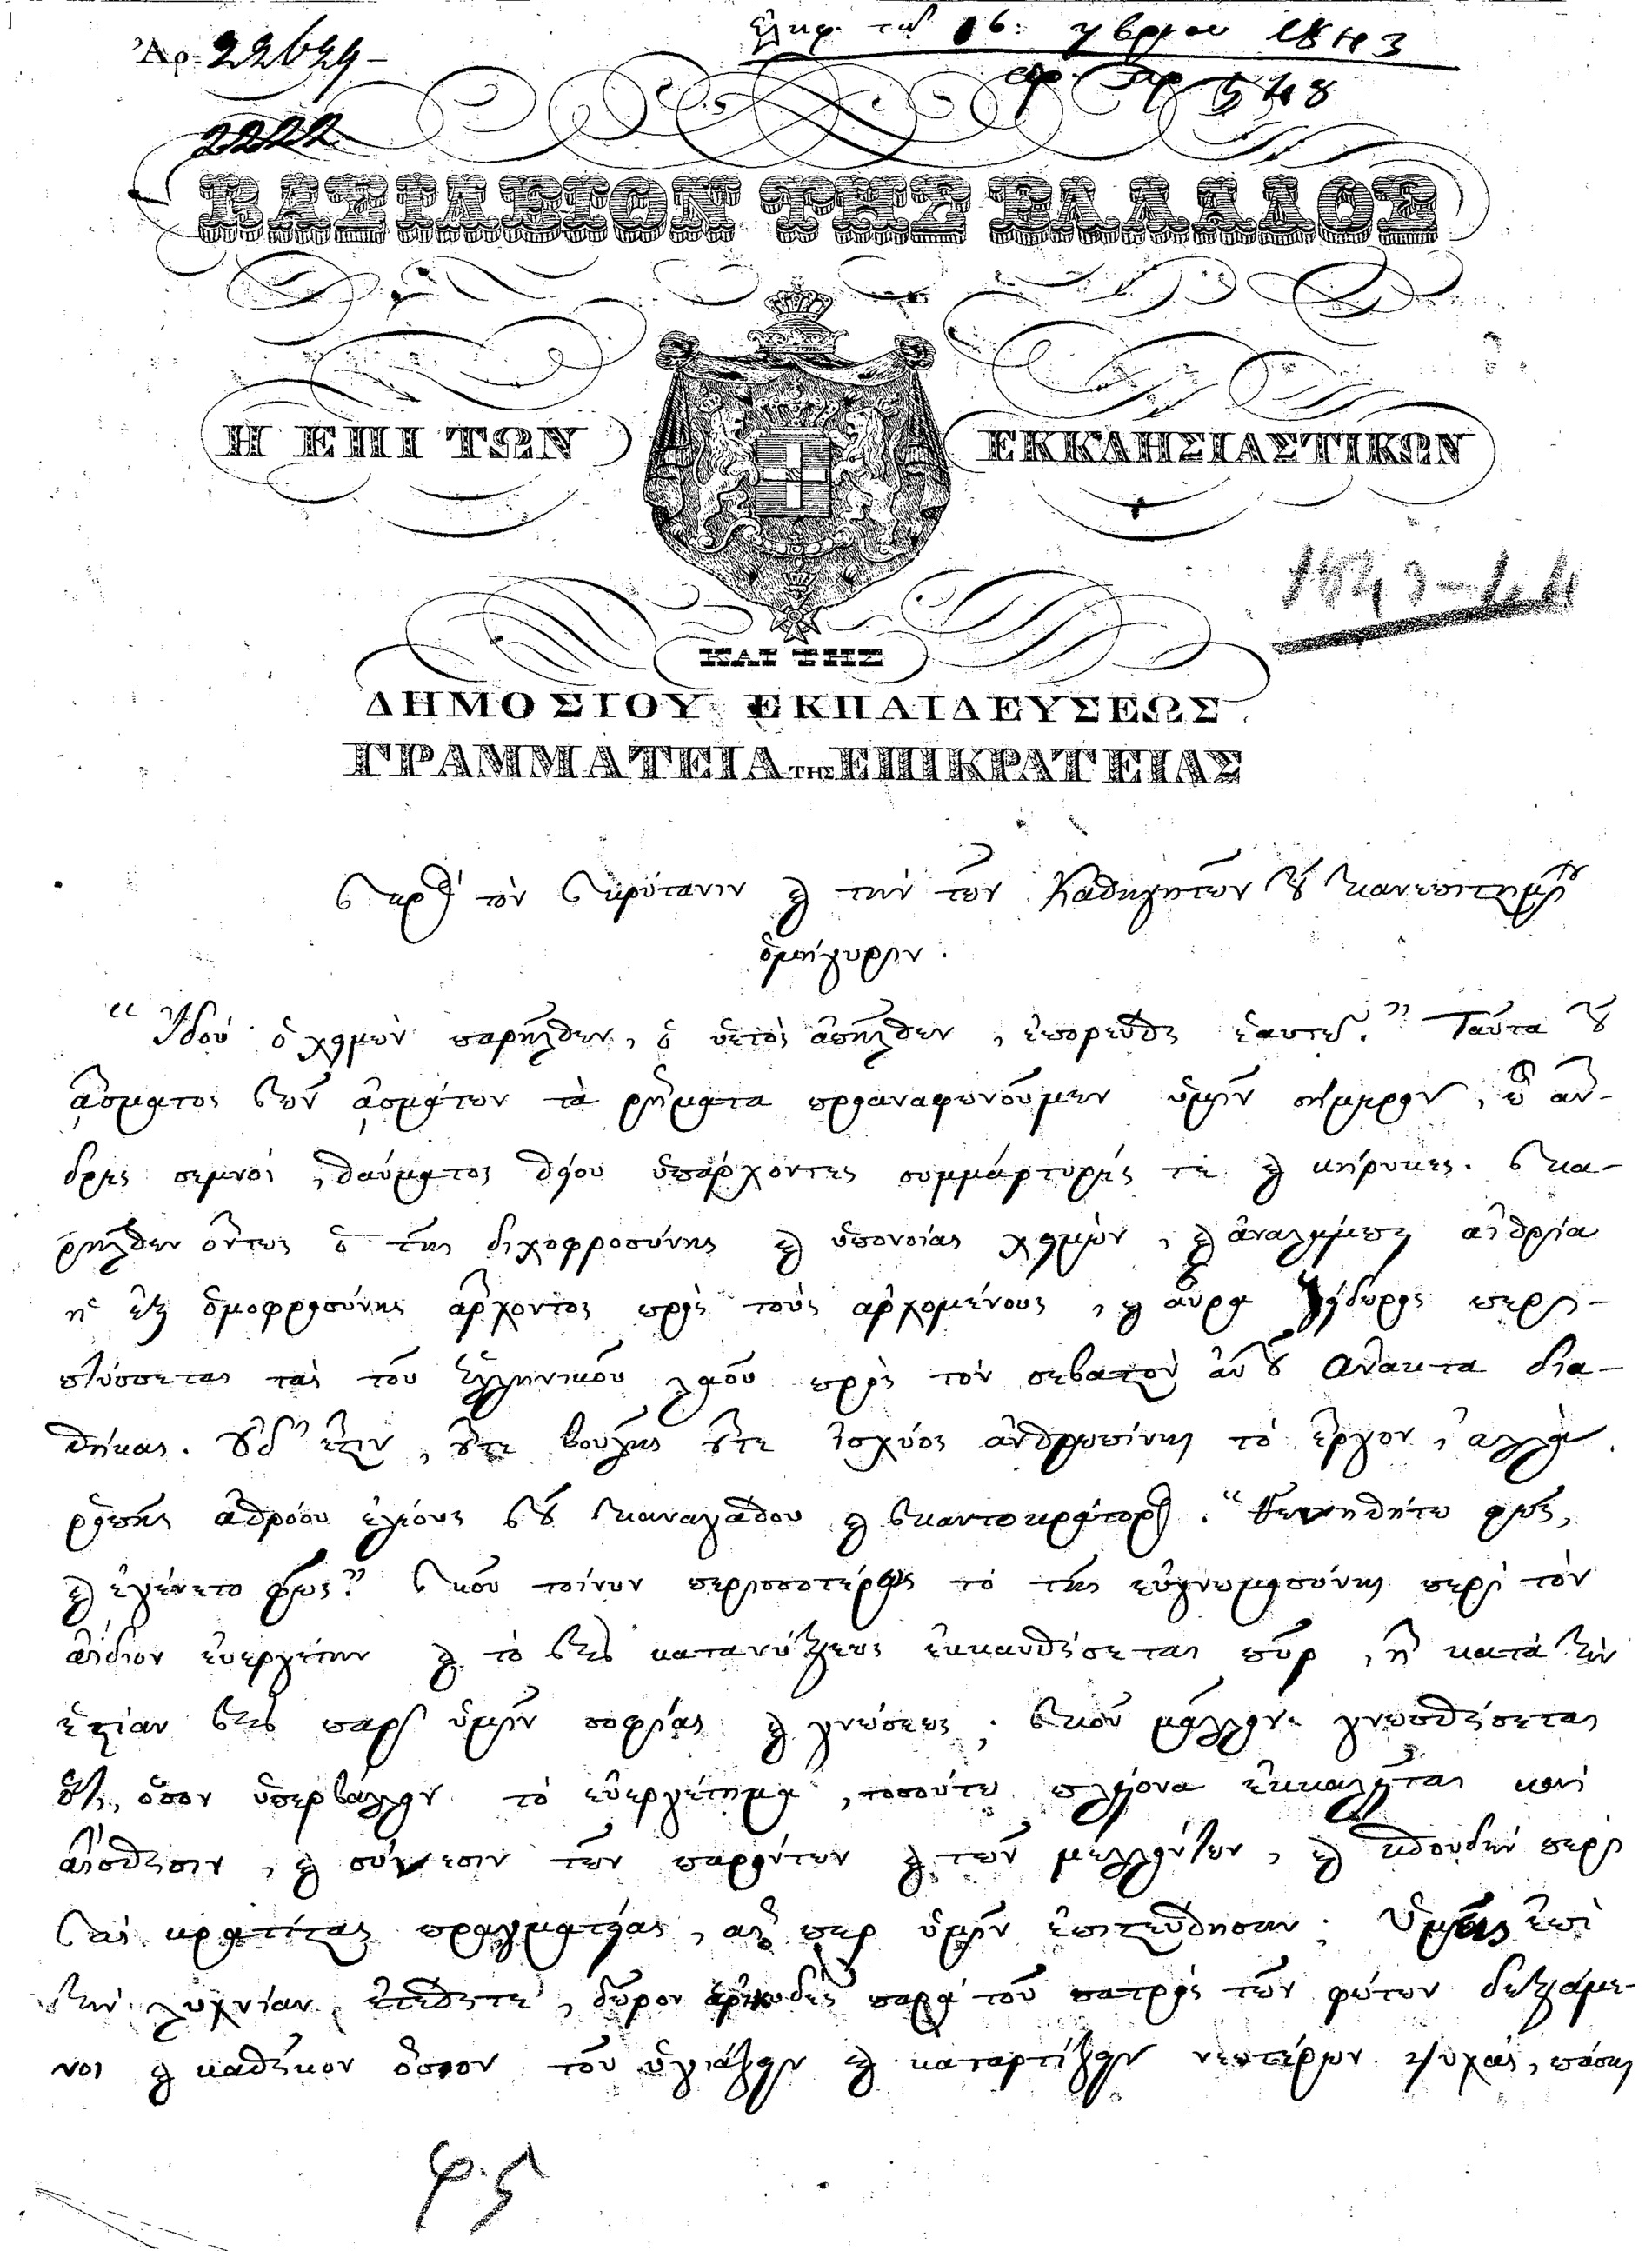 Ἀρ: 22629
2222
ἐλήφ. τῇ 16: 9βρίου 1843
ἀρ. πρ. 548
ΒΑΣΙΛΕΙΟΝ ΤΗΣ ΕΛΛΑΔΟΣ
Η ΕΠΙ ΤΩΝ ΕΚΚΛΗΣΙΑΣΤΙΚΩΝ
1843-44
ΚΑΙ ΤΗΣ
ΔΗΜΟΣΙΟΥ ΕΚΠΑΙΔΕΥΣΕΩΣ
ΓΡΑΜΜΑΤΕΙΑ ΤΗΣ ΕΠΙΚΡΑΤΕΙΑΣ
Πρὸς τὸν Πρύτανιν καὶ τὴν τῶν Καθηγητῶν τοῦ Πανεπιστημίου
ὁμήγυριν.
“Ἰδού ὁ χειμὼν παρῆλθεν, ὁ ὑετὸς ἀπῆλθεν, ἐπορεύθη ἑαυτῷ.” Ταῦτα τοῦ
ᾄσματος τῶν ᾀσμάτων τὰ ῥήματα προαναφωνοῦμεν ὑμῖν σήμερον, ὦ ἄν-
δρες σεμνοί, θαύματος θείου ὑπάρχοντες συμμάρτυρές τε καὶ κήρυκες. Πα-
ρῆλθεν ὄντως ὁ τῆς διχοφροσύνης καὶ ὑπονοίας χειμὼν, καὶ ἀναλάμπει αἰθρία
ἡ ἐξ ὁμοφροσύνης ἄρχοντος πρὸς τοὺς ἀρχομένους, καὶ αὔρα ἡδυρὸς περι-
πτύσσεται τὰς τοῦ Ἑλληνικοῦ λαοῦ πρὸς τὸν σεβαστὸν αὐτοῦ Ἄνακτα δια-
θήκας. Οὐδ᾽ ἔστιν, οὔτε βουλῆς οὔτε ἰσχύος ἀνθρωπίνης τὸ ἔργον, ἀλλὰ
ῥοπῆς ἀθρόου ἐλέους τοῦ Παναγάθου καὶ Παντοκράτορος. “Γεννηθήτω φῶς,
καὶ ἐγένετο φῶς.” Ποῦ τοίνυν περισσοτέρως τὸ τῆς εὐγνωμοσύνης περὶ τὸν
ἀΐδιον εὐεργέτην καὶ τὸ τῆς κατανύξεως ἐκκαυθήσεται πῦρ, ἢ κατὰ τὴν
ἑστίαν τῆς παρ᾽ ὑμῖν σοφίας καὶ γνώσεως; Ποῦ μᾶλλον γνωσθήσεται
ὅτι, ὅσον ὑπερβάλλον τὸ εὐεργέτημα, τοσούτῳ πλείονα ἐκκαλεῖται καὶ
αἴσθησιν, καὶ σύνεσιν τῶν παρόντων καὶ τῶν μελλόντων, καὶ σπουδὴν περὶ
τὰς κρατίστας πραγματείας, αἵ περ ὑμῖν ἐπιστεύθησαν; Ὑμεῖς ἐπὶ
τὴν λυχνίαν ἐτέθητε, δῶρον ἐρικυδὲς παρὰ τοῦ πατρὸς τῶν φώτων δεξάμε-
νοι καὶ καθῆκον ὅσιον τοῦ ὑγιάζειν καὶ καταρτίζειν νεωτέρων ψυχὰς, πάσης